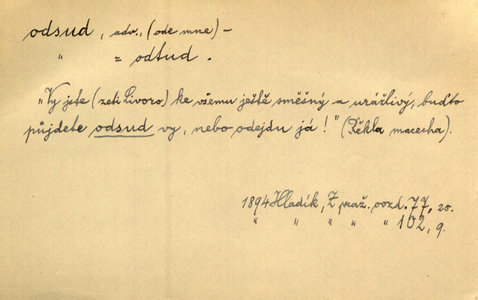 odsud, adv., (ode mne) —
" = odtud.
"Vy jste (zeti Livoro) ke všemu ještě směšný a urážlivý, buďto
půjdete odsud vy, nebo odejdu já!" (Řekla macecha).
1894 Hladík, Z praž. ovzd. 77, 20.
" " " " " 102, 9.